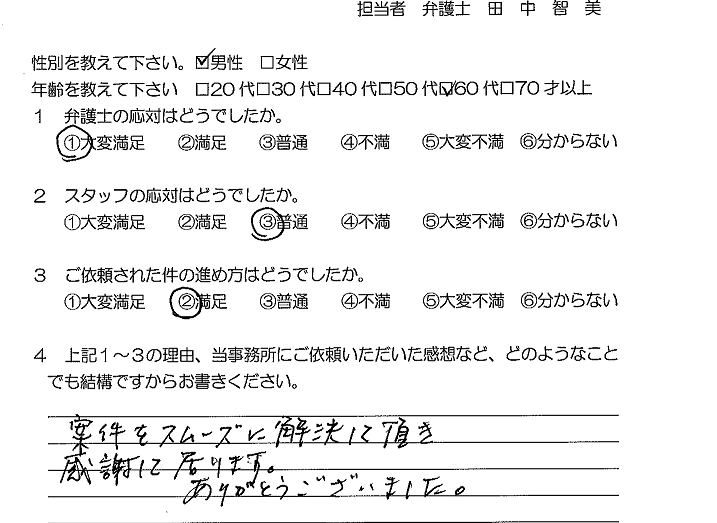 担当者　弁護士　田　中　智　美
性別を教えて下さい。☑男性　□女性
年齢を教えて下さい　□20代□30代□40代□50代☑60代□70才以上
1　弁護士の応対はどうでしたか。
①大変満足　②満足　③普通　④不満　⑤大変不満　⑥分からない
2　スタッフの応対はどうでしたか。
①大変満足　②満足　③普通　④不満　⑤大変不満　⑥分からない
3　ご依頼された件の進め方はどうでしたか。
①大変満足　②満足　③普通　④不満　⑤大変不満　⑥分からない
4　上記1～3の理由、当事務所にご依頼いただいた感想など、どのようなこと
でも結構ですからお書きください。
案件をスムーズに解決して頂き
感謝して居ります。
ありがとうございました。